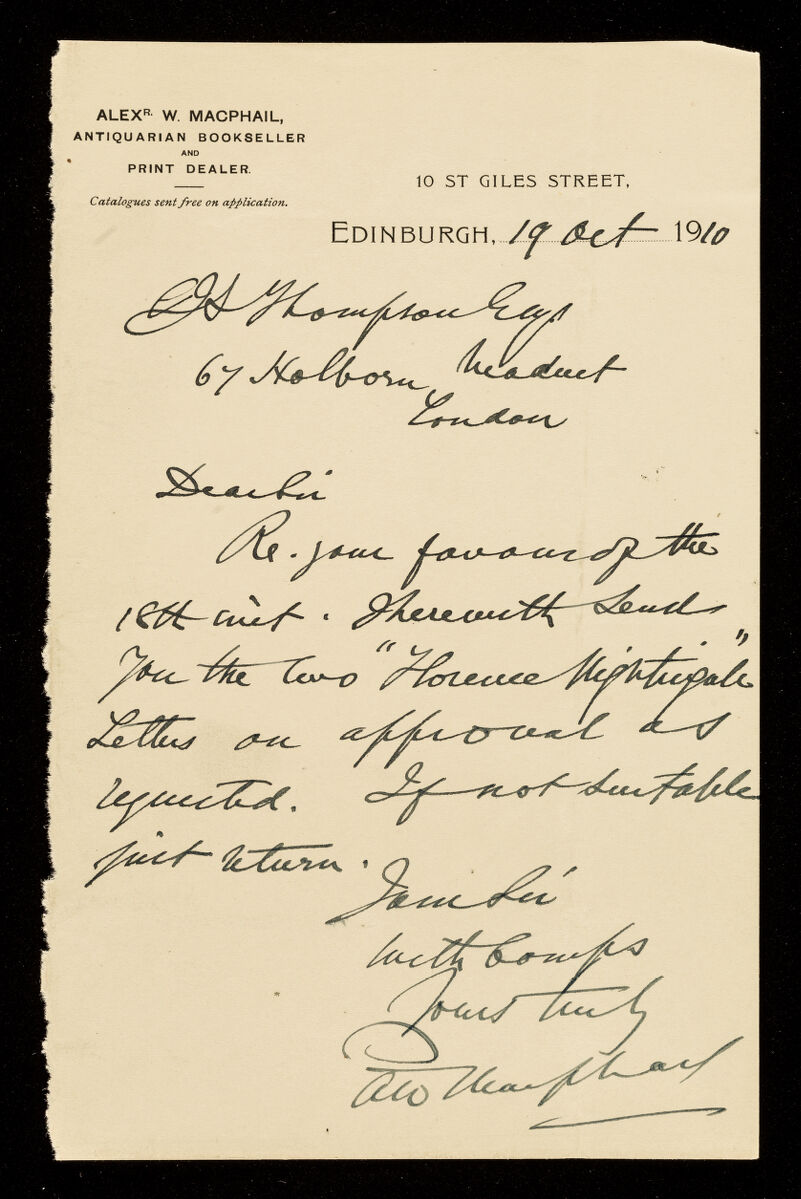 ALEXR. W. MACPHAIL,
ANTIQUARIAN BOOKSELLER
AND
PRINT DEALER.
Catalogues sent free on application.
10 ST GILES STREET,
EDINBURGH, 19 Oct 1910
CJS Thompson Esq
67 Holborn Viaduct
London
Dear Sir
Re. your favour of the
18th inst. I herewith send
you the two "Florence Nightingale"
Letters on approval as
requested. If not suitable
just return.
I am Sir
with Comps
Yours truly
AW Macphail